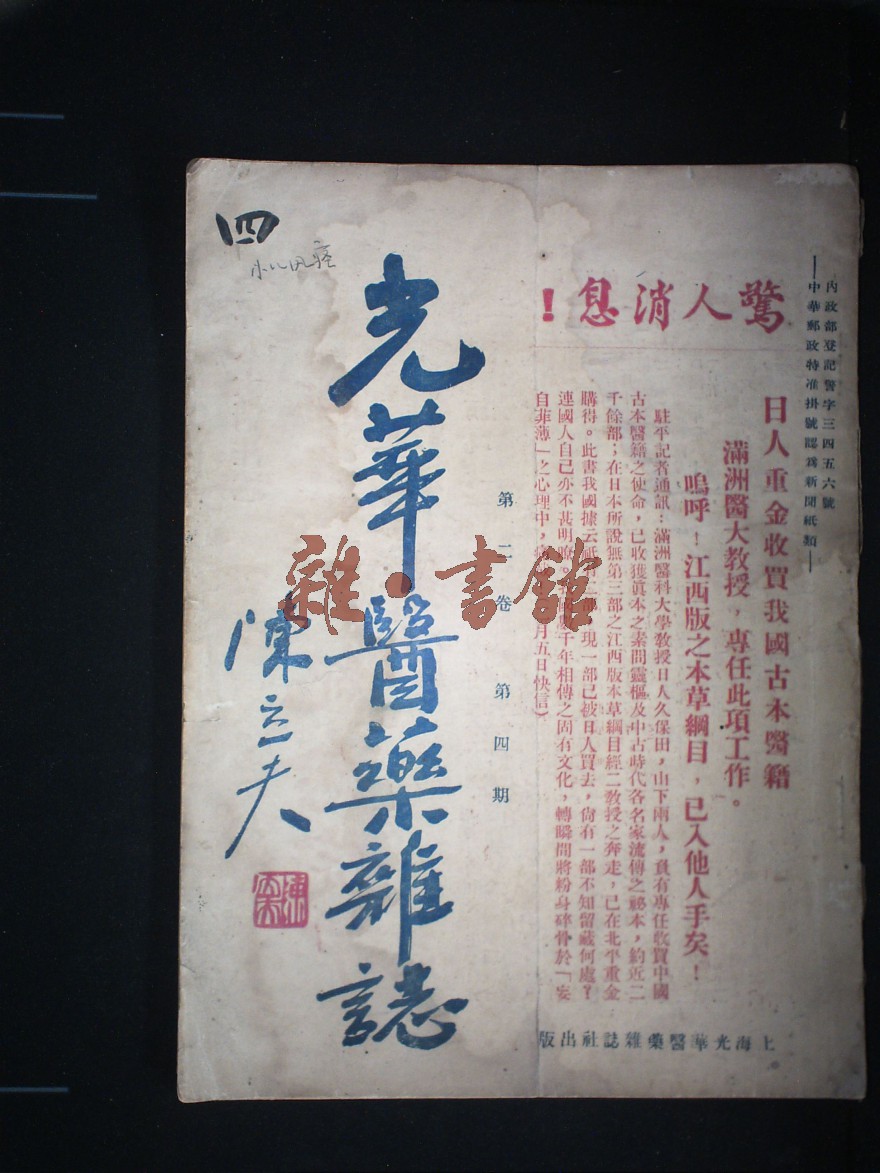 內政部登記警字三四五六號
中華郵政特准掛號認爲新聞紙類
驚人消息！
日人重金收買我國古本醫籍
滿洲醫大教授，專任此項工作。
嗚呼！江西版之本草綱目，已入他人手矣！
駐平記者通訊：滿洲醫科大學教授日人久保田，山下兩人，負有專任收買中國
古本醫籍之使命，已收獲眞本之素問靈樞及中古時代各名家流傳之祕本，約近二
千餘部；在日本所說無第三部之江西版本草綱目經二教授之奔走，已在北平重金
購得。此書我國據云祇有二部，現一部已被日人買去，尙有一部不知留藏何處？
連國人自己亦不甚明瞭。千年相傳之固有文化，轉瞬間將粉身碎骨於「妄
自菲薄」之心理中，月五日快信）
第二卷 第四期
光華醫藥雜誌
陳立夫
四
小儿风痉
雜·書館
上海光華醫藥雜誌社出版